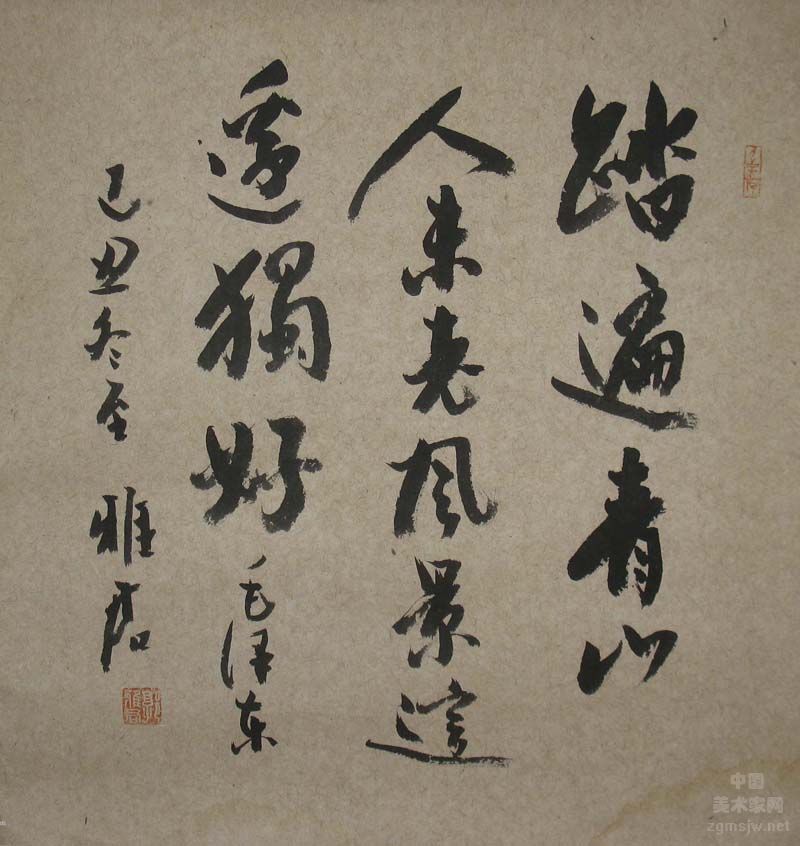 踏遍青山
人未老风景這
邊獨好 毛泽东
己丑冬至 雅君
中国
美术家网
zgmsjw.net